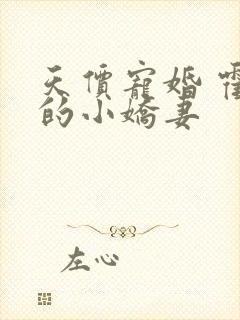 天價寵婚
的小嬌妻
左心